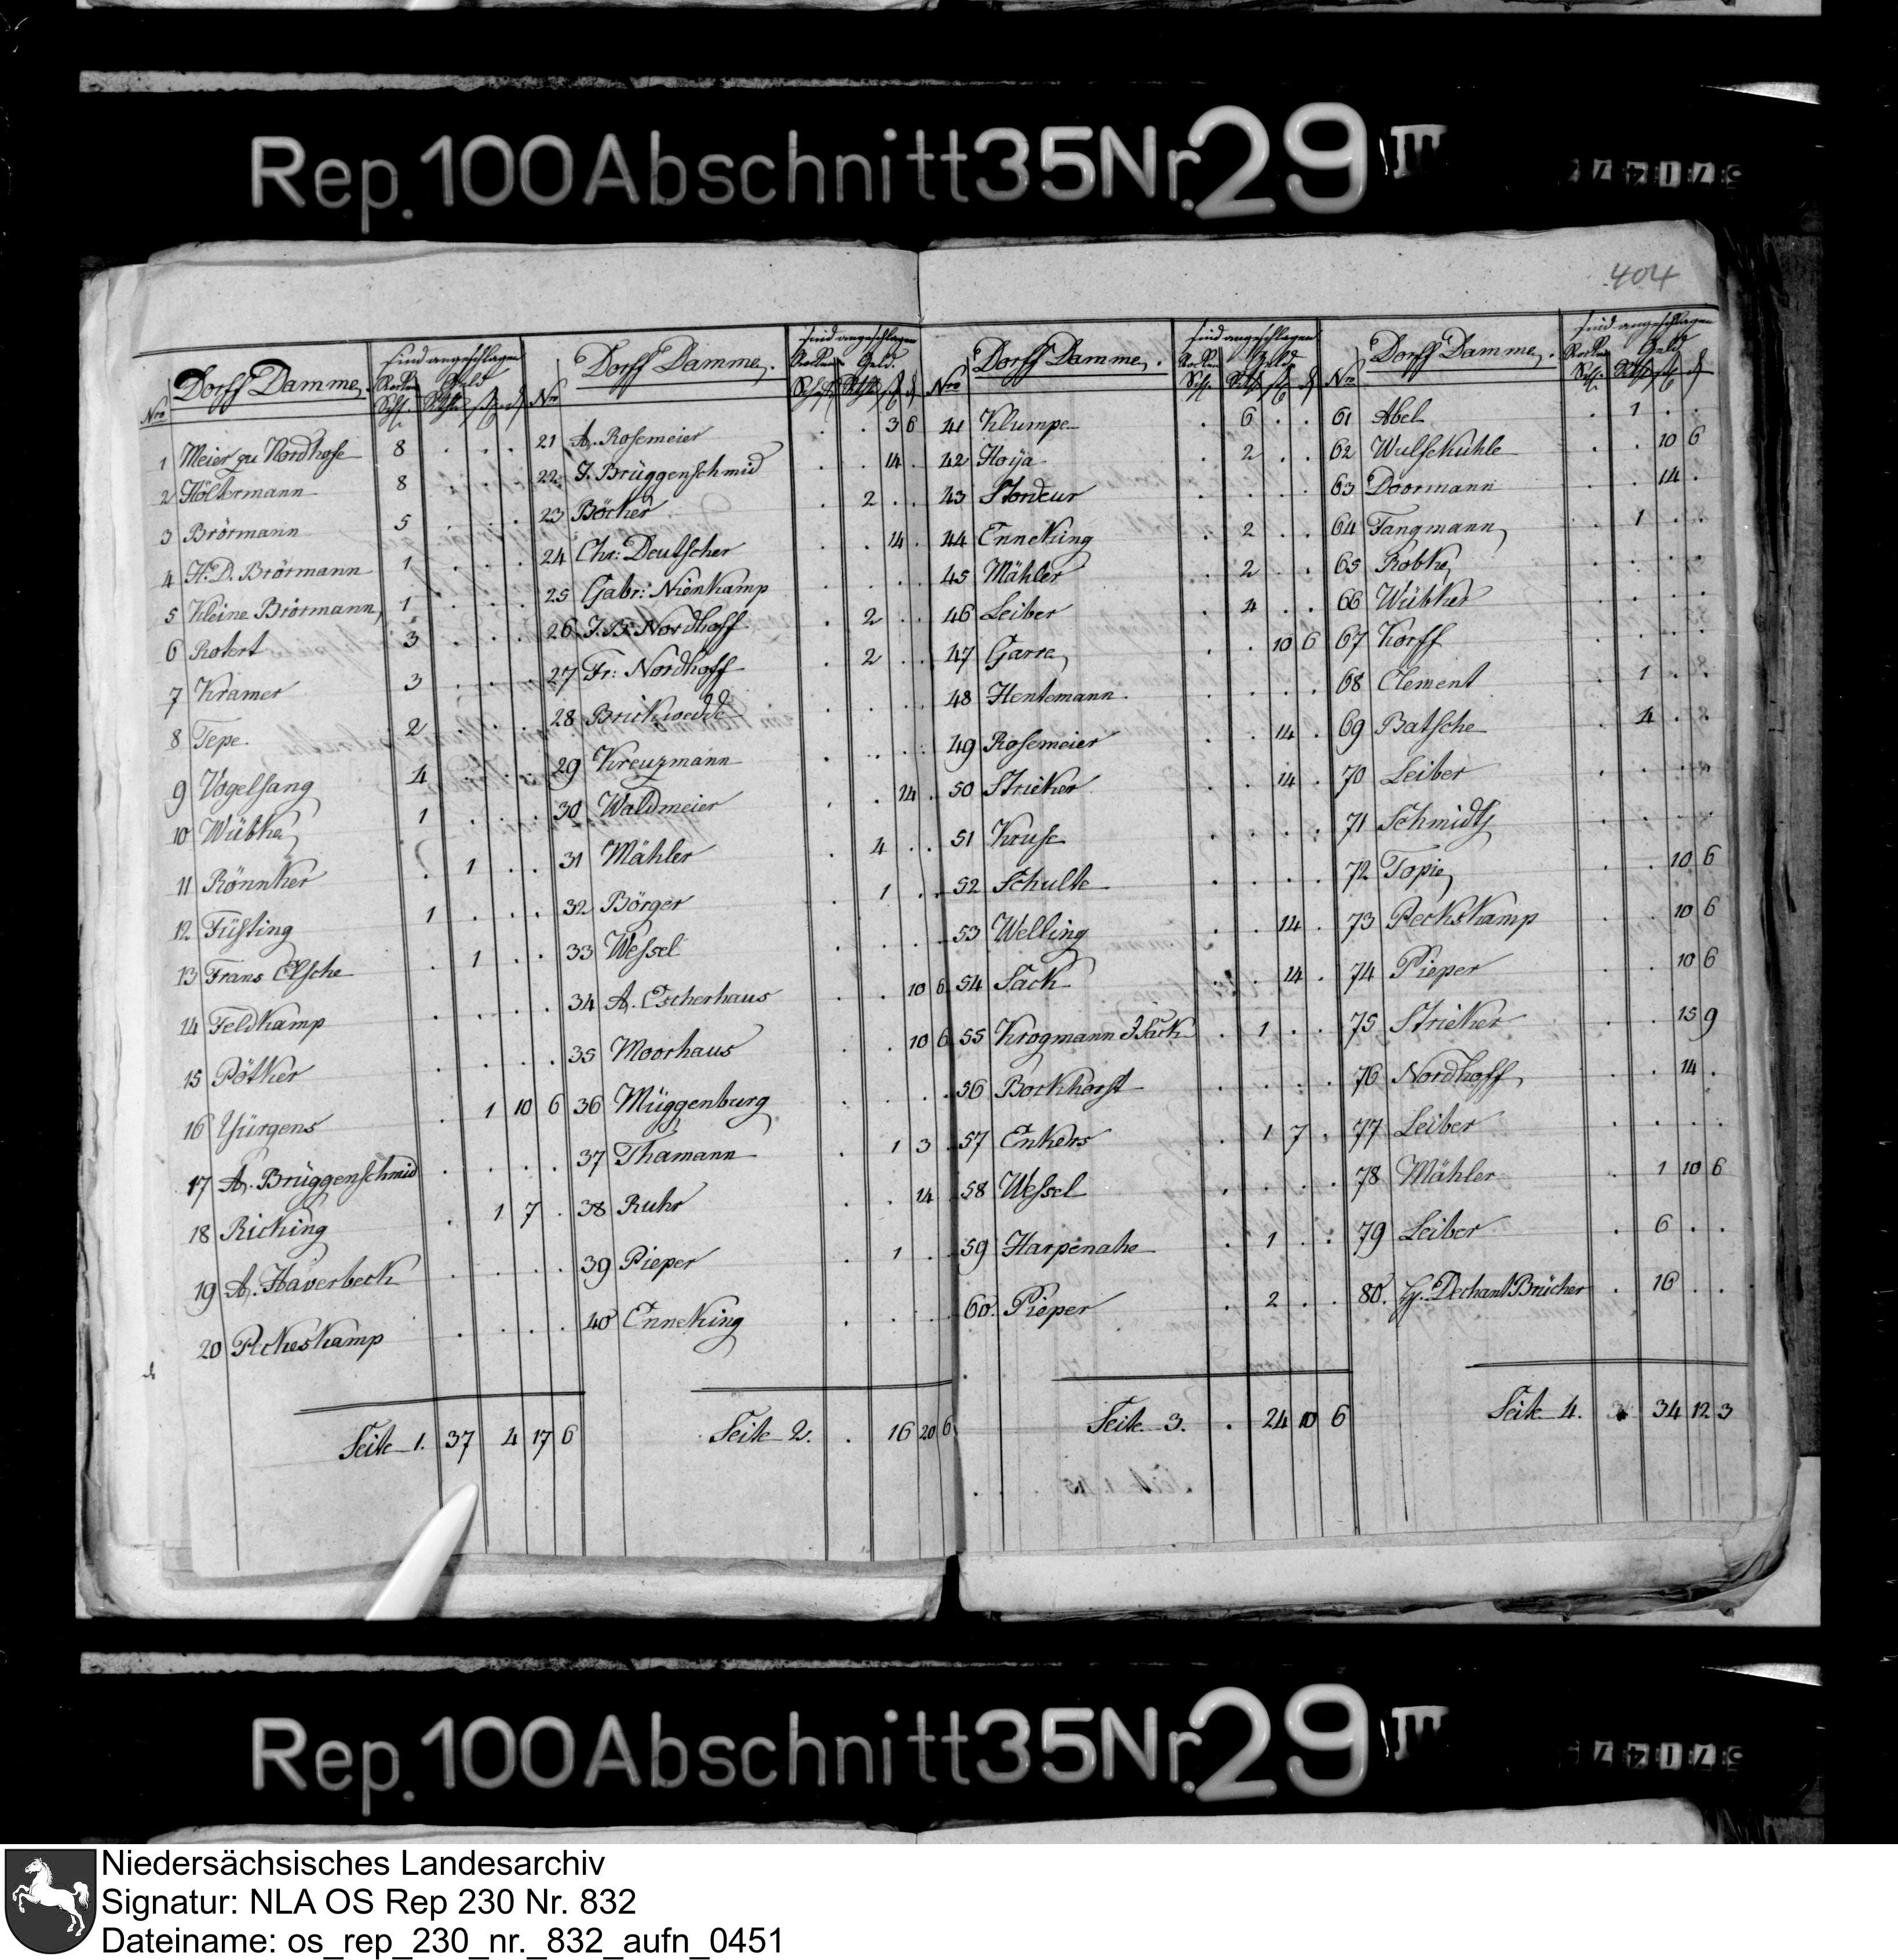 Rep. 100 Abschnitt 35 Nr. 29 III
404
sind angeschlagen
Nro Dorff Damme. Rocken Geld
1 Meier zu Nordhofe 8 . . .
2 Höltermann 8 . . .
3 Brörmann 5 . . .
4 H. D. Brörmann 1 . . .
5 Kleine Brörmann 1 . . .
6 Rotert 3 . . .
7 Kramer 3 . . .
8 Tepe 2 . . .
9 Vogelsang 4 . . .
10 Wübke 1 . . .
11 Rönnker . 1 . .
12 Füsting 1 . . .
13 Frans Elsche . 1 . .
14 Feldkamp . . . .
15 Pötker . . . .
16 Yürgens . 1 10 6
17 A. Brüggenschmid . . . .
18 Ricking . 1 7 .
19 A. Haverbeck . . . .
20 Peckeskamp . . . .
Seite 1. 37 4 17 6
sind angeschlagen
Nro Dorff Damme. Rocken Geld.
21 A. Rosemeier . . 3 6
22 J. Brüggenschmid . . 14 .
23 Böcker . 2 . .
24 Chr: Deutscher . . 14 .
25 Gabr: Nienkamp . . . .
26 J. B. Nordhoff . 2 . .
27 Fr: Nordhoff . 2 . .
28 Brickwedde . . . .
29 Kreuzmann . . . .
30 Waldmeier . . 14 .
31 Mähler . 4 . .
32 Börger . 1 . .
33 Wessel . . . .
34 A. Escherhaus . . 10 6
35 Moorhaus . . 10 6
36 Müggenburg . . . .
37 Thamann . 1 3 .
38 Ruhr . . 14
39 Pieper . 1 . .
40 Enneking . . . .
Seite 2. . 16 20 6
sind angeschlagen
Nro Dorff Damme. Rocken Geld
41 Klumpe . 6 . .
42 Hoya . 2 . .
43 Stordeur . . . .
44 Enneking . 2 . .
45 Mähler . 2 . .
46 Leiber . 4 . .
47 Garre . . 10 6
48 Hentemann . . . .
49 Rosemeier . . 14 .
50 Stricker . . 14 .
51 Kruse . . . .
52 Schulte . . . .
53 Welling . . 14 .
54 Sack . . 14 .
55 Krogmann J Sack . 1 . .
56 Bockhorst . . . .
57 Enkers . 1 7 .
58 Wessel . . . .
59 Harpenake . 1 . .
60. Pieper . 2 . .
Seite 3. . 24 10 6
sind angeschlagen
Nro Dorff Damme. Rocken Geld
61 Abel . 1 . .
62 Wulfekuhle . . 10 6
63 Doormann . . 14 .
64 Fangmann . 1 . .
65 Robke . . . .
66 Wübker . . . .
67 Korff . . . .
68 Clement . 1 . .
69 Batsche . 4 . .
70 Leiber . . . .
71 Schmidt . . . .
72 Topie . . 10 6
73 Peckskamp . . 10 6
74 Pieper . . 10 6
75 Stricker . . 15 9
76 Nordhoff . . 14 .
77 Leiber . . . .
78 Mähler . 1 10 6
79 Leiber . 6 . .
80. H. Dechant Brücher . 16 . .
Seite 4. 34 12 3
Rep. 100 Abschnitt 35 Nr. 29 III
Niedersächsisches Landesarchiv
Signatur: NLA OS Rep 230 Nr. 832
Dateiname: os_rep_230_nr._832_aufn_0451